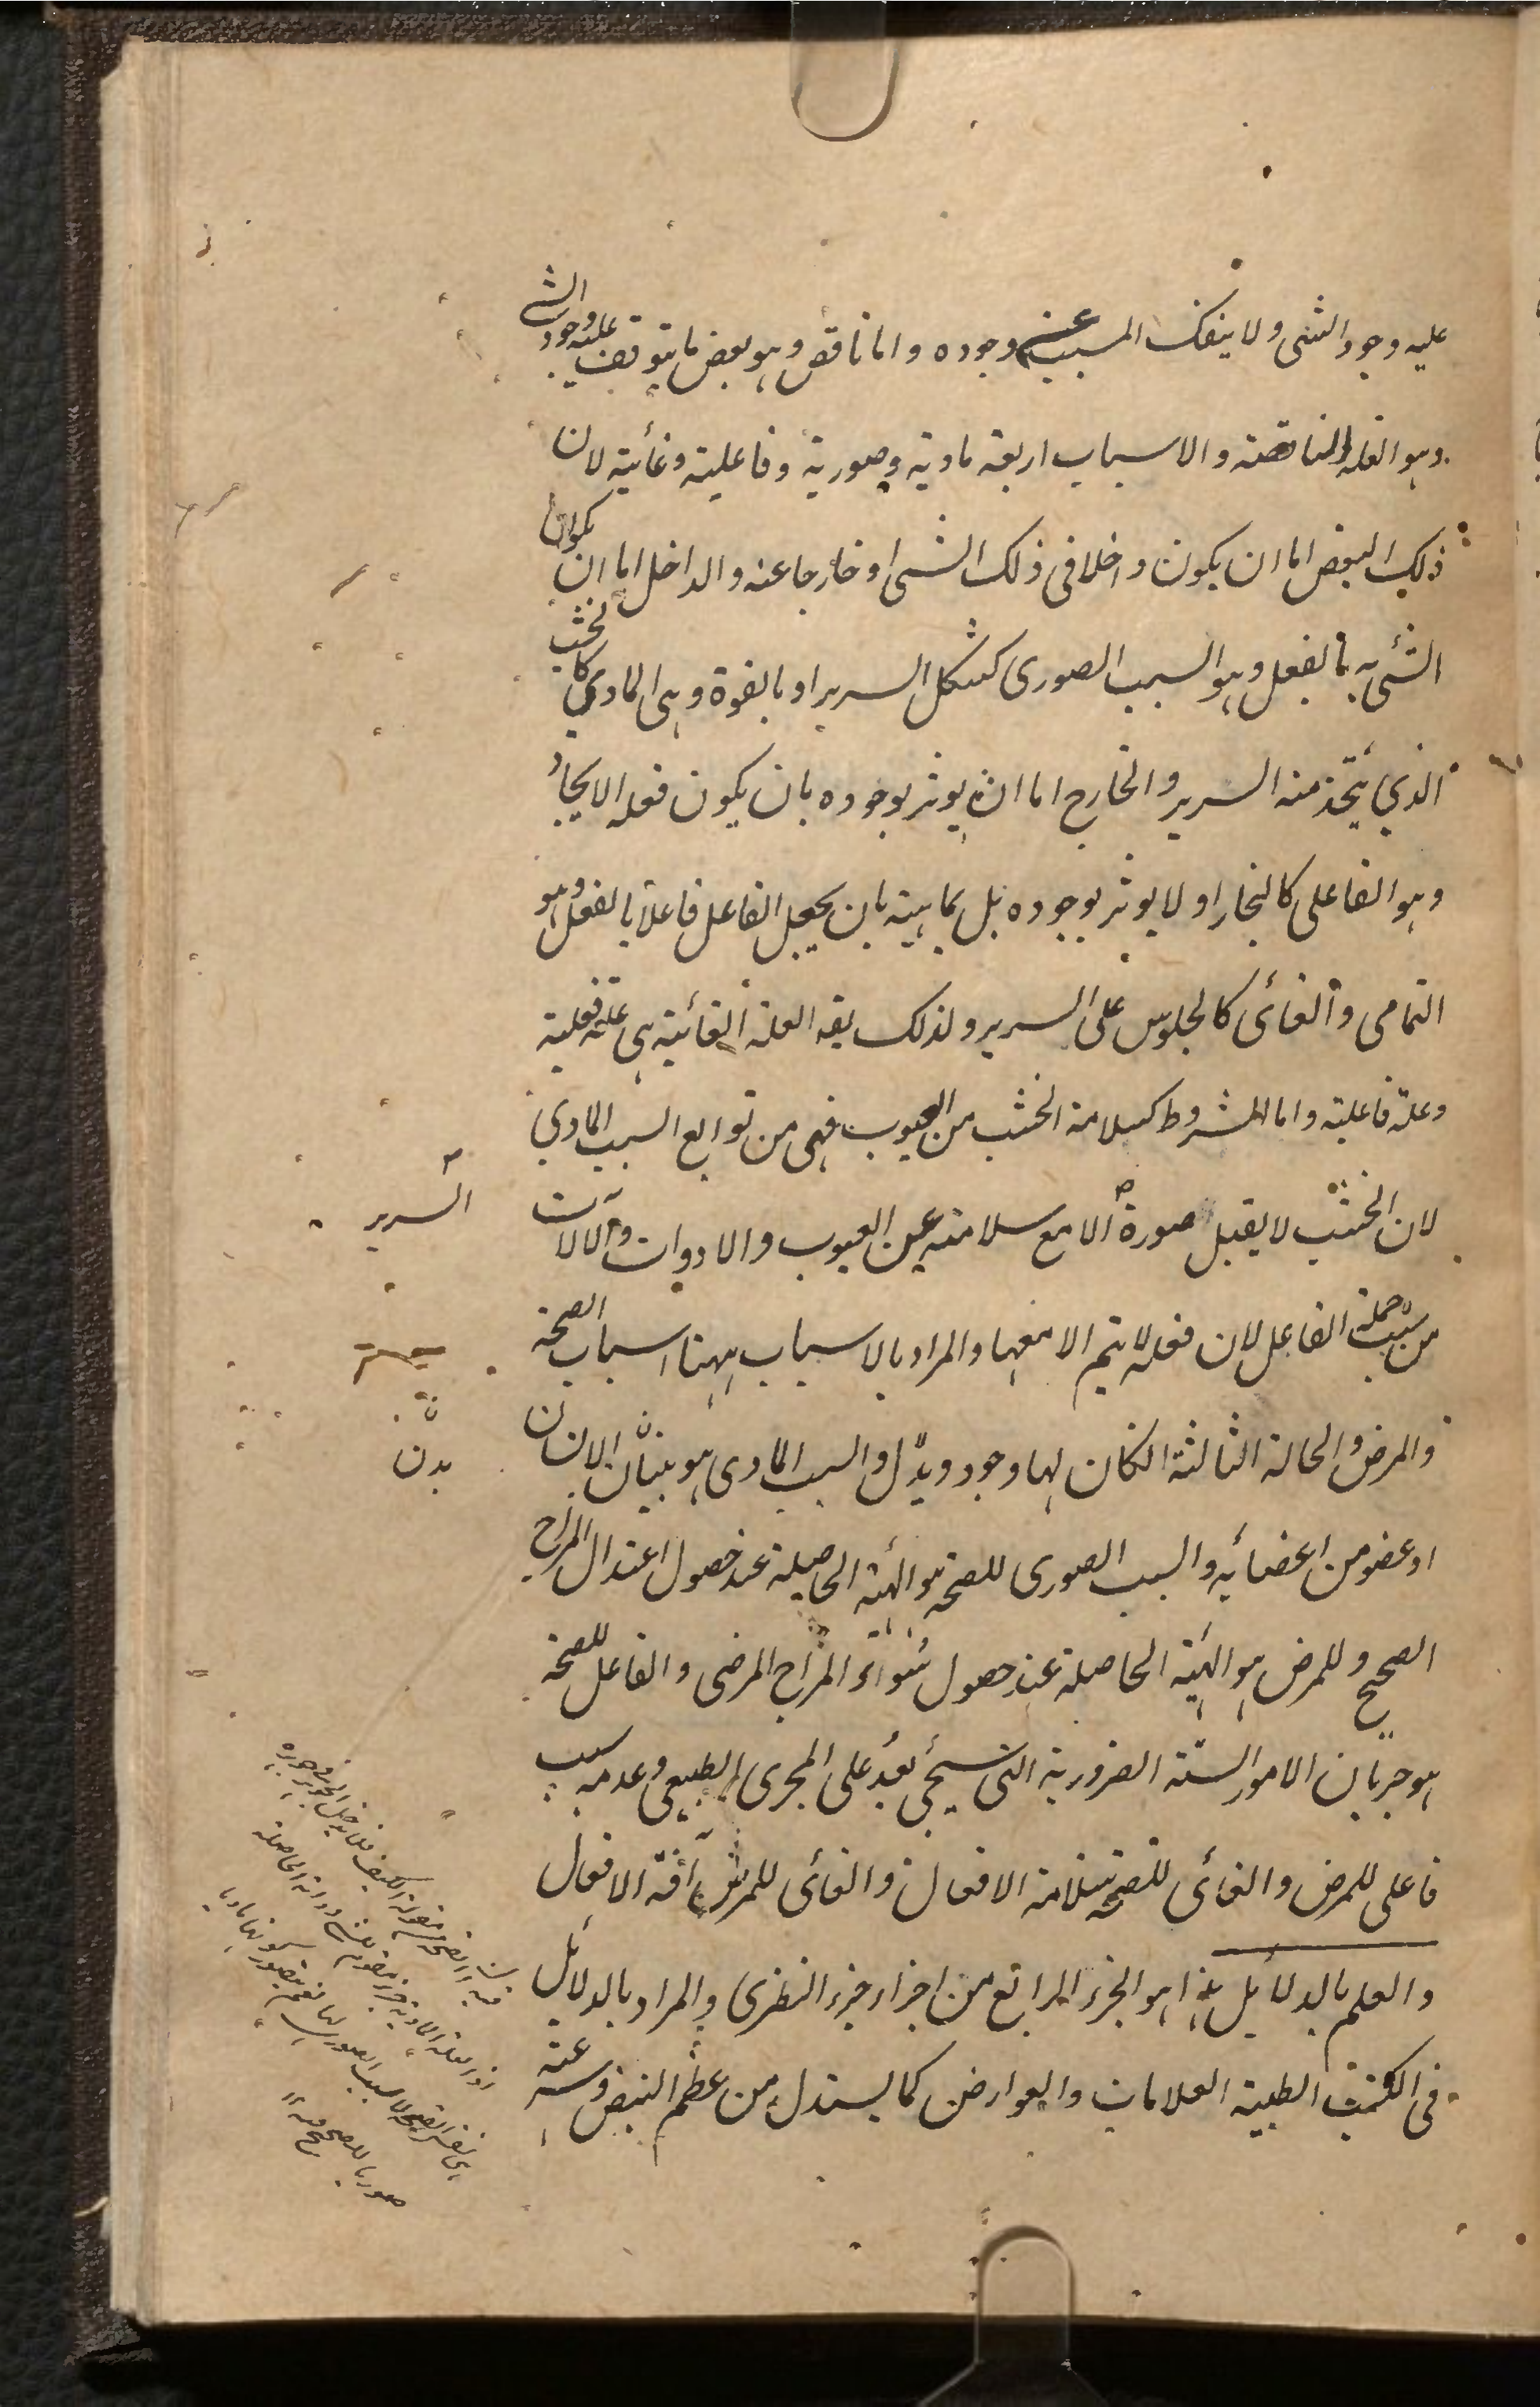 عليه وجود الشئ ولا ينفك المسبب عن وجوده واما ناقص وهو بعض ما يتوقف عليه وجود الشئ
وهو العلة الناقصة والاسباب اربعة مادية وصورية وفاعلية وغائية لان
ذلك البعض اما ان يكون داخلا فى ذلك الشئ او خارجا عنه والداخل اما ان يكون
الشئ به بالفعل وهو السبب الصورى كشكل السرير او بالقوة وهى المادي كالخشب
الذي يتخذ منه السرير والخارج اما ان يوثر بوجوده بان يكون فعله الايجاد
وهو الفاعلى كالنجار او لا يوثر بوجوده بل بماهيته بان يجعل الفاعل فاعلا بالفعل وهو
التمامى والغائى كالجلوس على السرير ولذلك يقه العلة الغائية هى علة فعلية
وعلة فاعلية واما الشروط كسلامة الخشب من العيوب فهى من توابع السبب المادي
لان الخشب لا يقبل صورة الا مع سلامته عن العيوب والادوات والآلات
السرير
من جملة سبب الفاعل لان فعله لا يتم الا معها والمراد بالاسباب ههنا اسباب الصحة
والمرض والحالة الثالثة انكان لها وجود والسبب المادى هو الانسان
بدن
او عضو من اعضائه والسبب الصورى للصحة هو الهيئة الحاصلة عند حصول اعتدال المزاج
الصحيح وللمرض هو الهيئة الحاصلة عند حصول سوء المزاج المرضى والفاعل للصحة
هو جريان الامور الستة الضرورية التى سيجئ بعد على المجرى الطبيعى وعدمه سبب
فاعلى للمرض والغائى للصحة سلامة الافعال والغائى للمرض آفة الافعال
والعلم بالدلائل هذا هو الجزء الرابع من اجزاء جزء النظرى والمراد بالدلائل
فى الكتب الطبية العلامات والعوارض كما يستدل من عظم النبض وسرعته